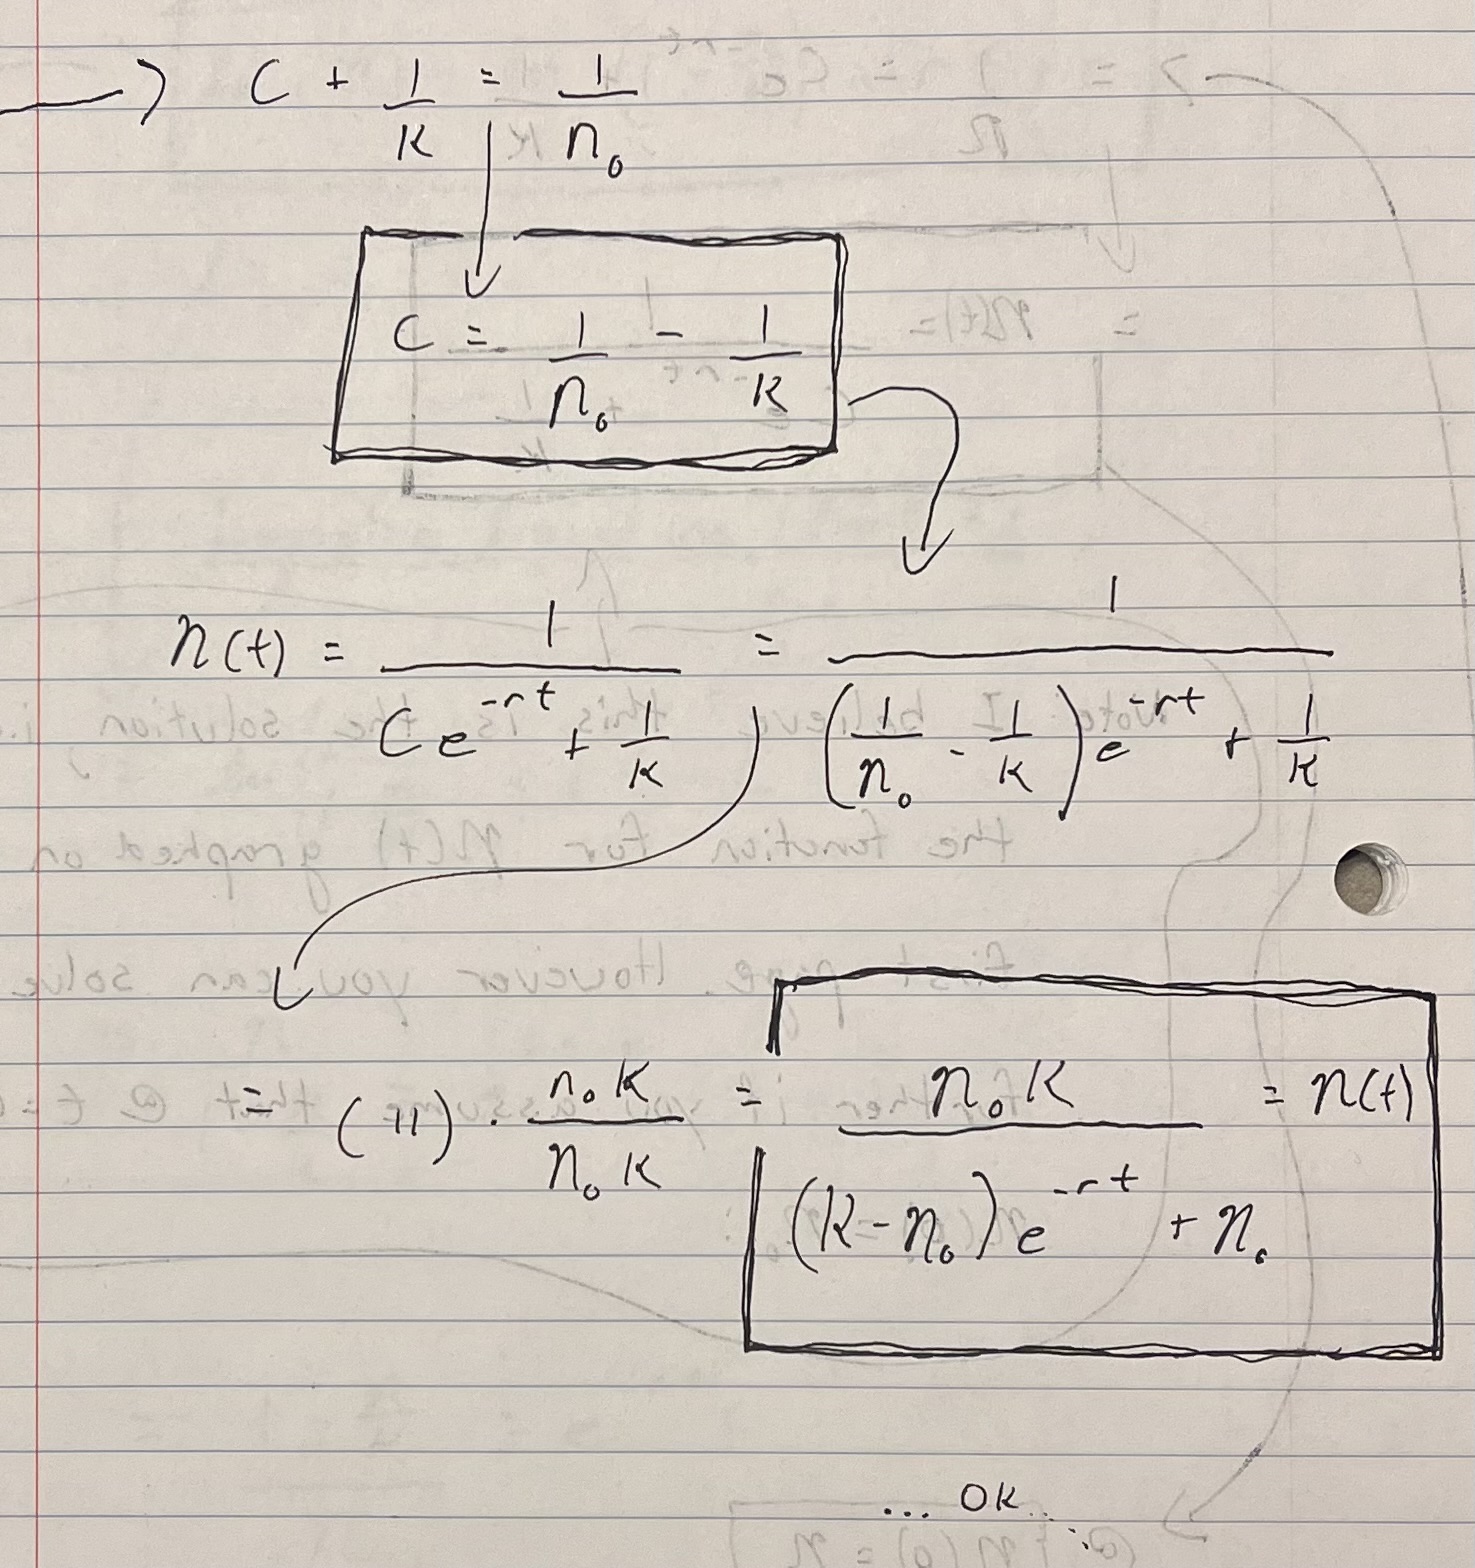 → C + 1/K = 1/n₀
C = 1/n₀ - 1/K
n(t) = 1/(Ce^(-rt) + 1/K) = 1/((1/n₀ - 1/K)e^(-rt) + 1/K)
= (11) · n₀K/n₀K = n₀K/((K-n₀)e^(-rt) + n₀) = n(t)
... OK...